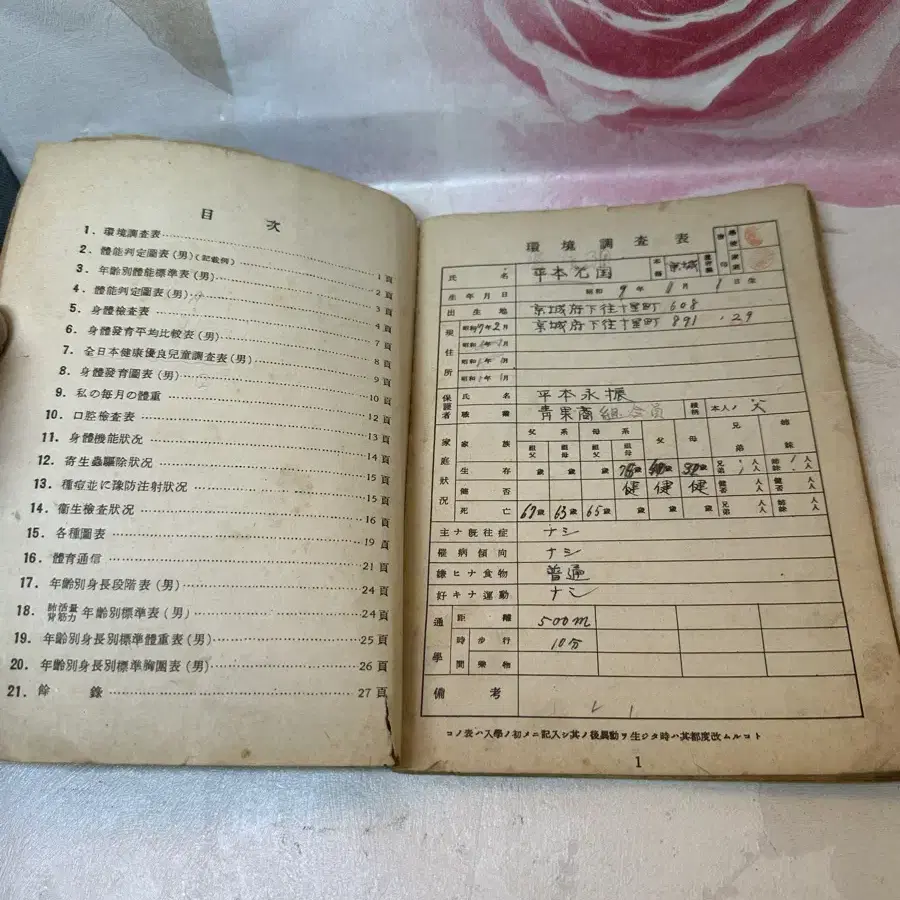 目 次
1. 環境調査表 1頁
2. 體能判定圖表(男)(記載例) 2頁
3. 年齡別體能標準表(男) 3頁
4. 體能判定圖表(男) 4頁
5. 身體檢査表 7頁
6. 身體發育平均比較表(男) 8頁
7. 全日本健康優良兒童調査表(男) 9頁
8. 身體發育圖表(男) 10頁
9. 私の毎月の體重 12頁
10. 口腔檢査表 13頁
11. 身體機能狀況 14頁
12. 寄生蟲驅除狀況 15頁
13. 種痘並に豫防注射狀況 15頁
14. 衞生檢査狀況 16頁
15. 各種圖表 19頁
16. 體育通信 21頁
17. 年齡別身長段階表(男) 24頁
18. 肺活量背筋力年齡別標準表(男) 24頁
19. 年齡別身長別標準體重表(男) 25頁
20. 年齡別身長別標準胸圍表(男) 26頁
21. 餘 錄 27頁
環境調査表
氏名 平本 本籍 京城
生年月日 昭和 9年 11月 1日生
出生地 京城府下往十里町 608
現住所 昭和 年2月 京城府下往十里町 891.29
昭和 年 月
昭和 年 月
昭和 年 月
保護者 氏名 平本永振
職業 青果商組合員 續柄 本人ノ 父
家庭狀況 家族 父系 祖父 祖母 母系 祖父 祖母 父 母 兄弟 姉妹
生存 歲 歲 歲 歲 歲 歲 兄 人 弟 人 姉 人 妹 人
健否 健 健 健 健否 人 人 健否 人 人
死亡 67歲 63歲 65歲 歲 歲 歲 兄 人 弟 人 姉 人 妹 人
主ナ既往症 ナシ
罹病傾向 ナシ
嫌ヒナ食物 普通
好キナ運動 ナシ
通學 距離 500m
時間 步行 10分
乘物
備考
コノ表ハ入學ノ初メニ記入シ其ノ後異動ヲ生ジタ時ハ其都度改ムルコト
1